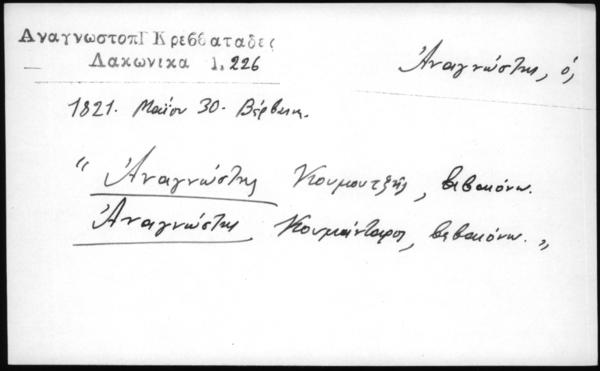 Αναγνωστοπ Γ Κρεββαταδες
Λακωνικα 1, 226
Ἀναγνώστης, ὁ,
1821. Μαΐου 30. Βέρβαινα.
“ Ἀναγνώστης Κουμουτζής, βεβαιόνω.
Ἀναγνώστης Κουμάνταρος, βεβαιόνω. „